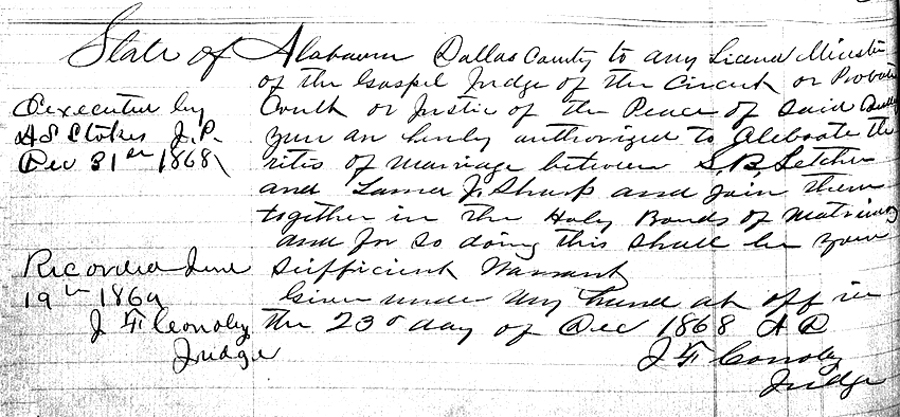 State of Alabama Dallas County to any Licend Minister
of the Gospel Judge of the Circuit or Probate
Court or Justice of the Peace of Said
you an hereby authorized to Celebrate the
rites of Marriage between S. B. Letcher
and J. Sharp and join them
together in the Holy Bonds of Matrimony
and for so doing this Shall be your
Sufficient Warrant
Given under My hand at office
the 23d day of Dec 1868 A D
Judge
Executed by
Stokes J.P.
Dec 31st 1868
Recorded June
19th 1869
Judge